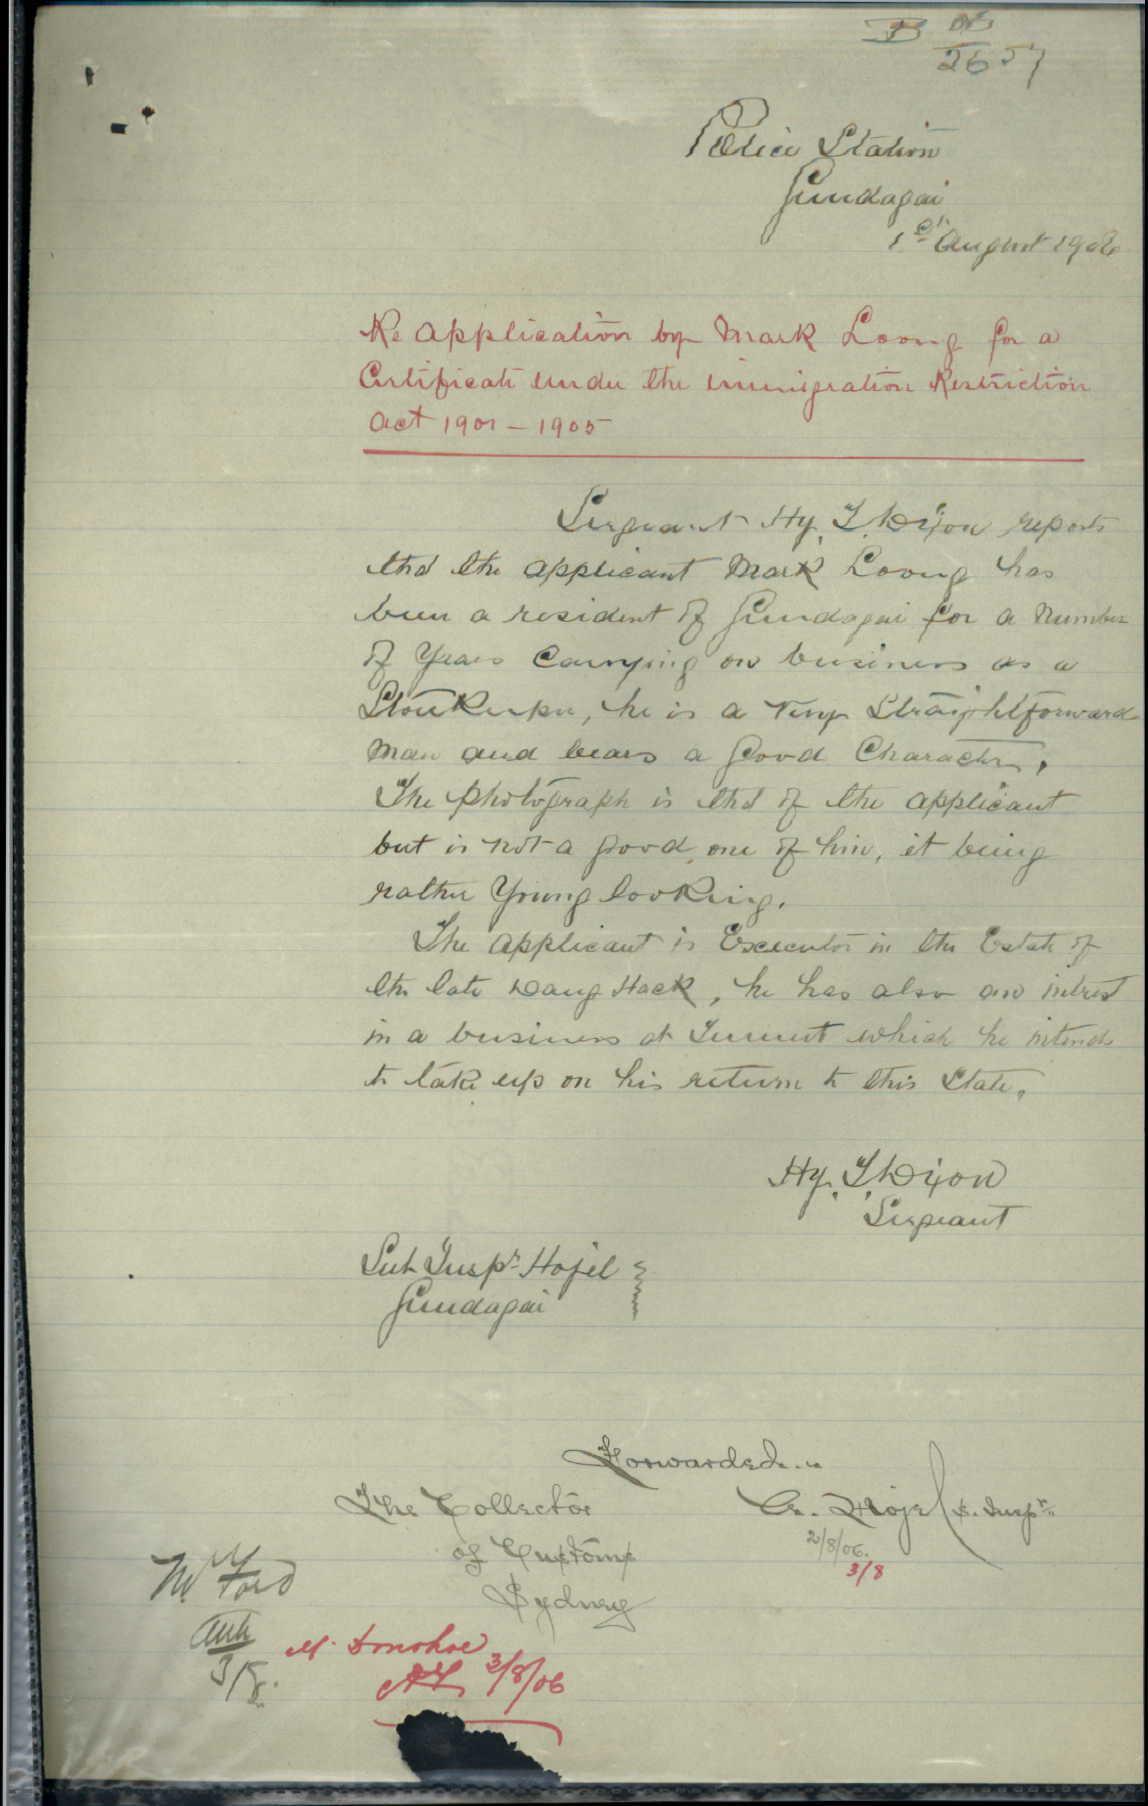 B 06
2657
Police Station
Gundagai
1st August 1906
Re Application by Mark Loong for a
Certificate under the immigration Restriction
Act 1901 - 1905
Sergeant Hy. T. Dixon reports
that the applicant Mark Loong has
been a resident of Gundagai for a Number
of Years Carrying on business as a
StoreKeeper, he is a very Straightforward
Man and bears a Good Character.
The photograph is that of the applicant
but is not a good one of him, it being
rather Young looking.
The applicant is Executor in the Estate of
the late Dang Hack, he has also an intrest
in a business at Tumut which he intends
to take up on his return to this State.
Hy. T. Dixon
Sergeant
Sub Inspr. Hojel
Gundagai
Forwarded
The Collector
of Customs
Sydney
C. Hojel S. Inspr
2/8/06.
3/8
Mr Ford
3/8.
M. Donohoe
3/8/06